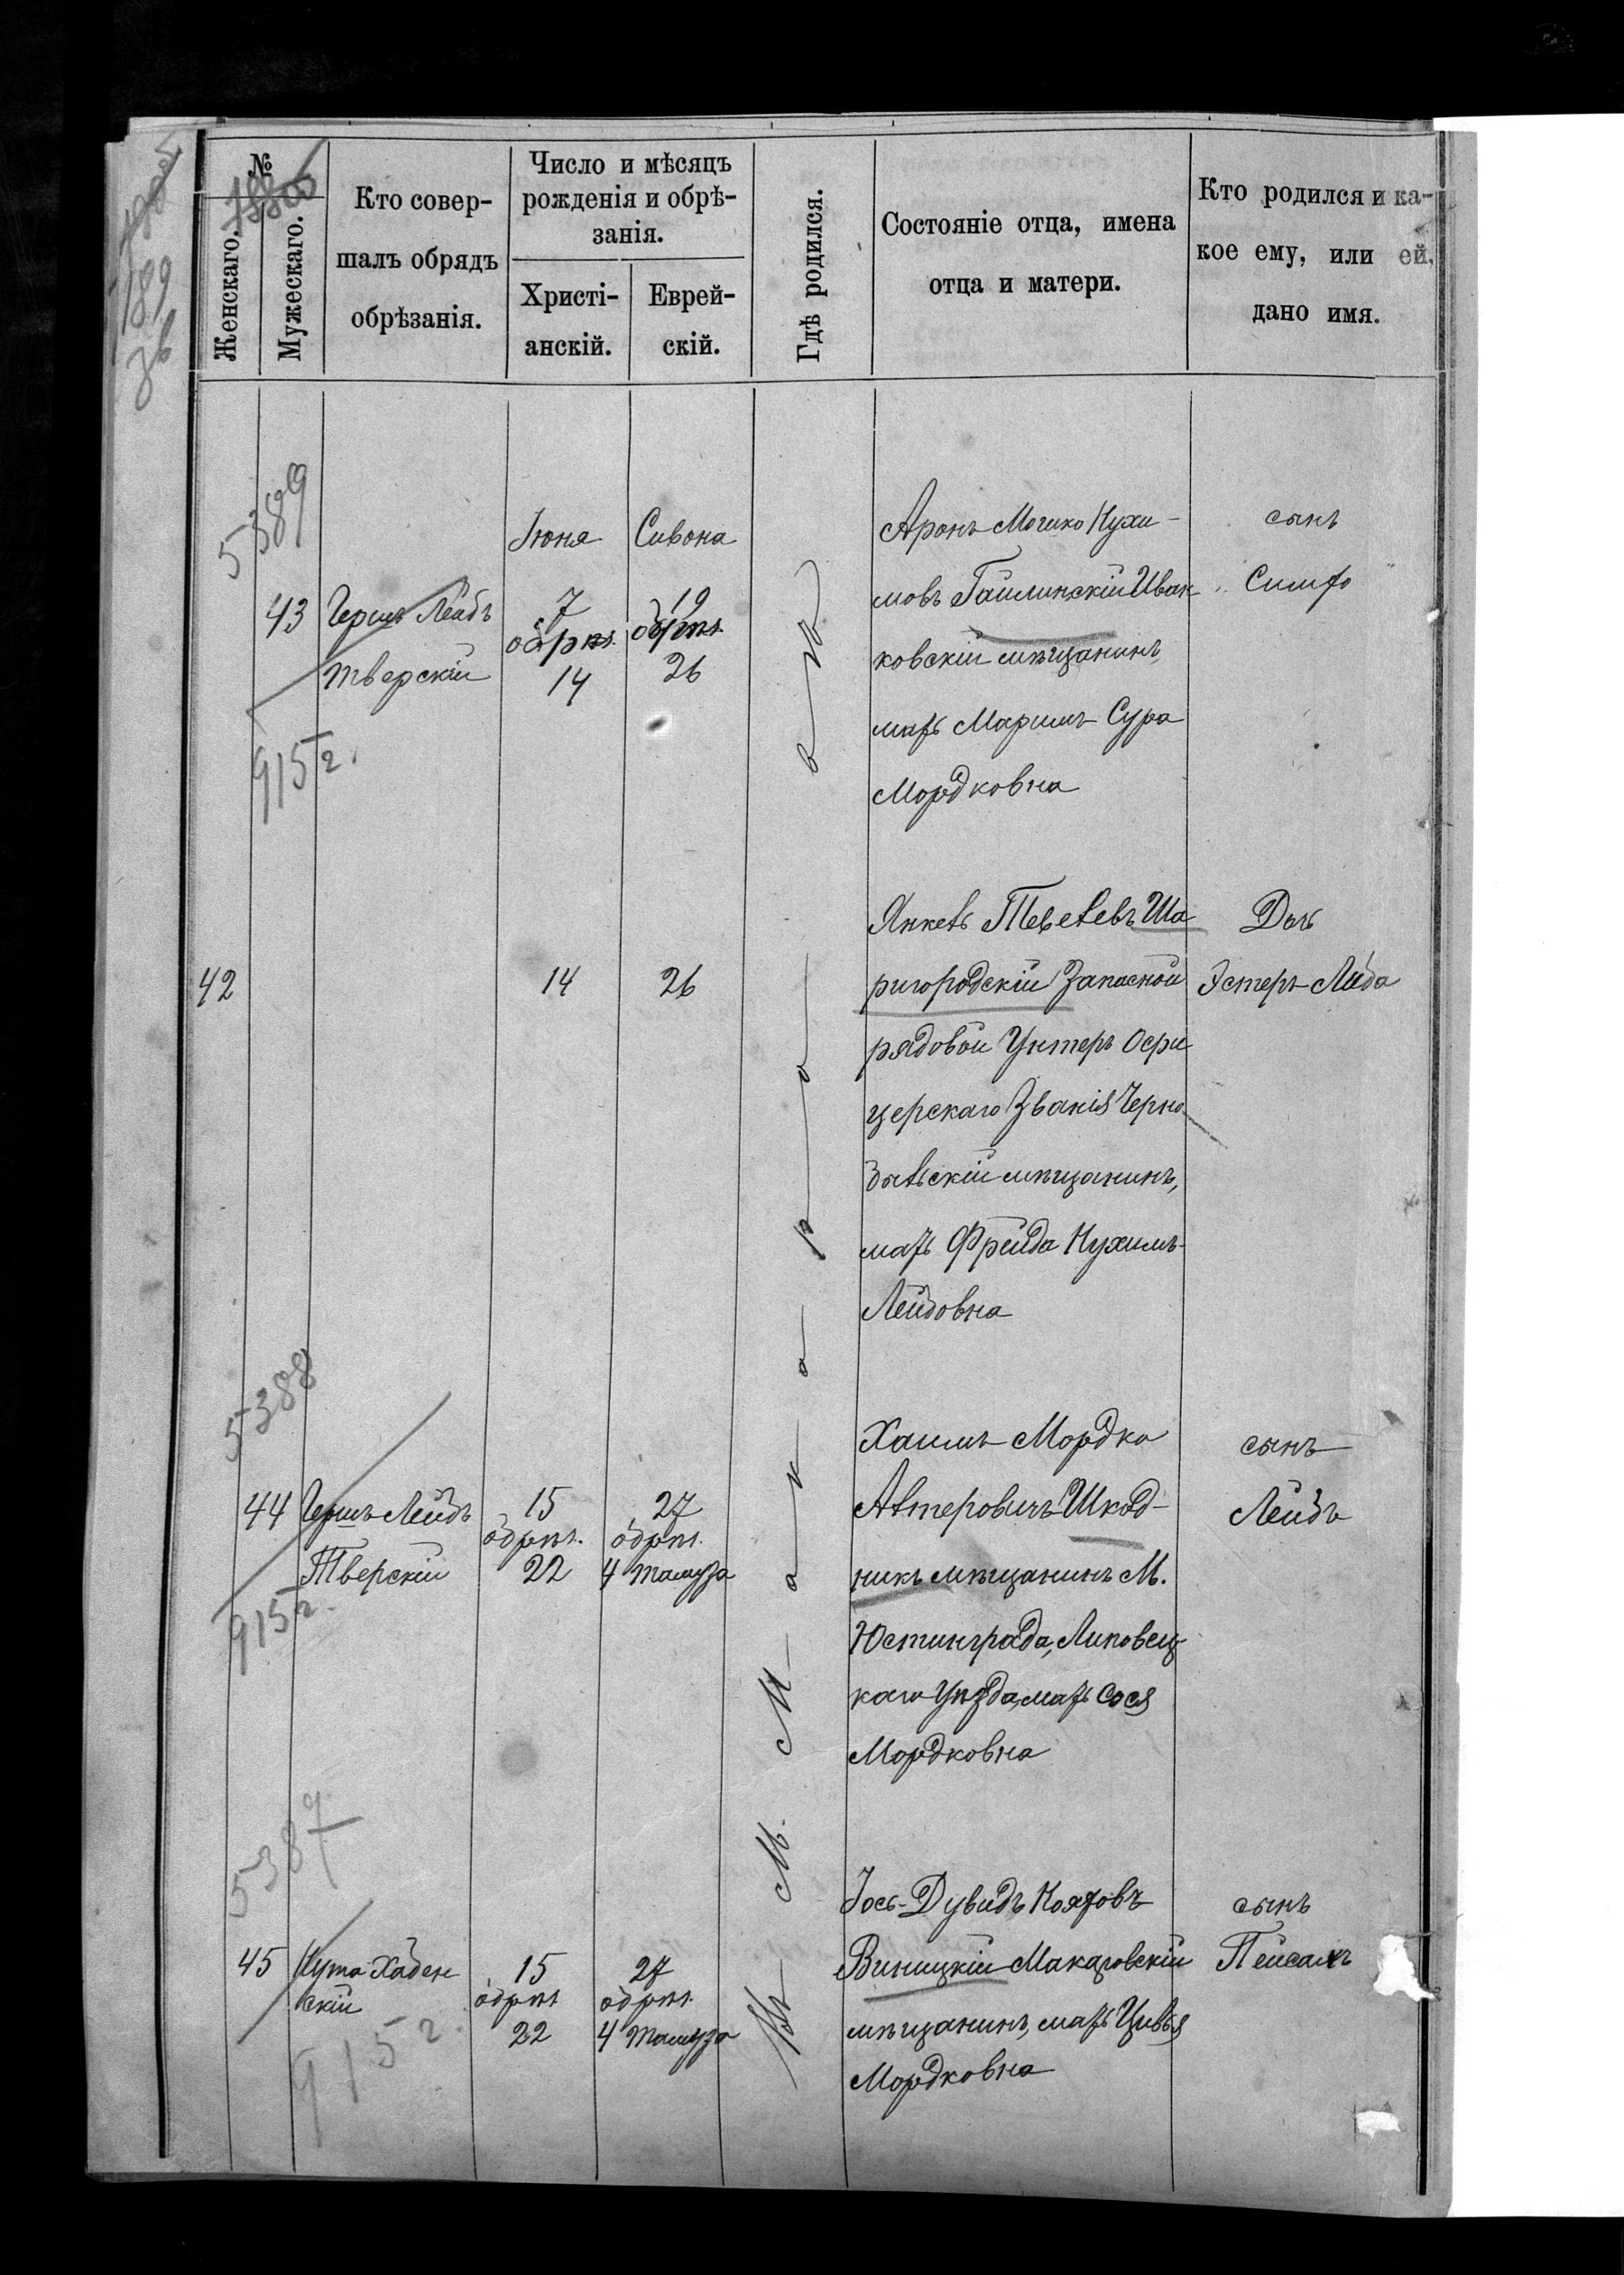 №
18805
189
Женскаго.
Мужескаго.
Кто совер-
шалъ обрядъ
обрѣзанія.
Число и мѣсяцъ
рожденія и обрѣ-
занія.
Христі-
анскій.
Еврей-
скій.
Гдѣ родился.
Состояніе отца, имена
отца и матери.
Кто родился и ка-
кое ему, или ей,
дано имя.
Въ М. Макаровѣ
5389
43
Гершъ Лейбъ
Тверскій
915 г.
Іюня
7
обрѣз.
14
Сивона
19
обрѣз.
26
Аронъ Мошко Нухи-
мовъ Гайлинскій Ивак
ковскій мѣщанинъ,
мать Маримъ Сура
Мордковна
сынъ
Симхо
42
14
26
Янкель Тевелевъ Ша
ригородскій Запасной
рядовой Унтеръ Офи
церскаго Званія Черно
быльскій мѣщанинъ,
мать Фрейда Нухимъ-
Лейбовна
Дочь
Эстеръ Либа
5388
44
Гершъ Лейбъ
Тверскій
915 г.
15
обрѣз.
22
27
обрѣз.
4 Тамуза
Хаимъ Мордко
Алтеровичъ Шкод-
никъ мѣщанинъ М.
Юстинграда, Липовец
каго Уѣзда, мать Сося
Мордковна
сынъ
Лейбъ
5387
45
Нута Хаден
скій
915 г.
15
обрѣз
22
27
обрѣз.
4 Тамуза
Іось-Дувидъ
Виницкій Макаровскій
мѣщанинъ, мать Цивья
Мордковна
сынъ
Пейсахъ